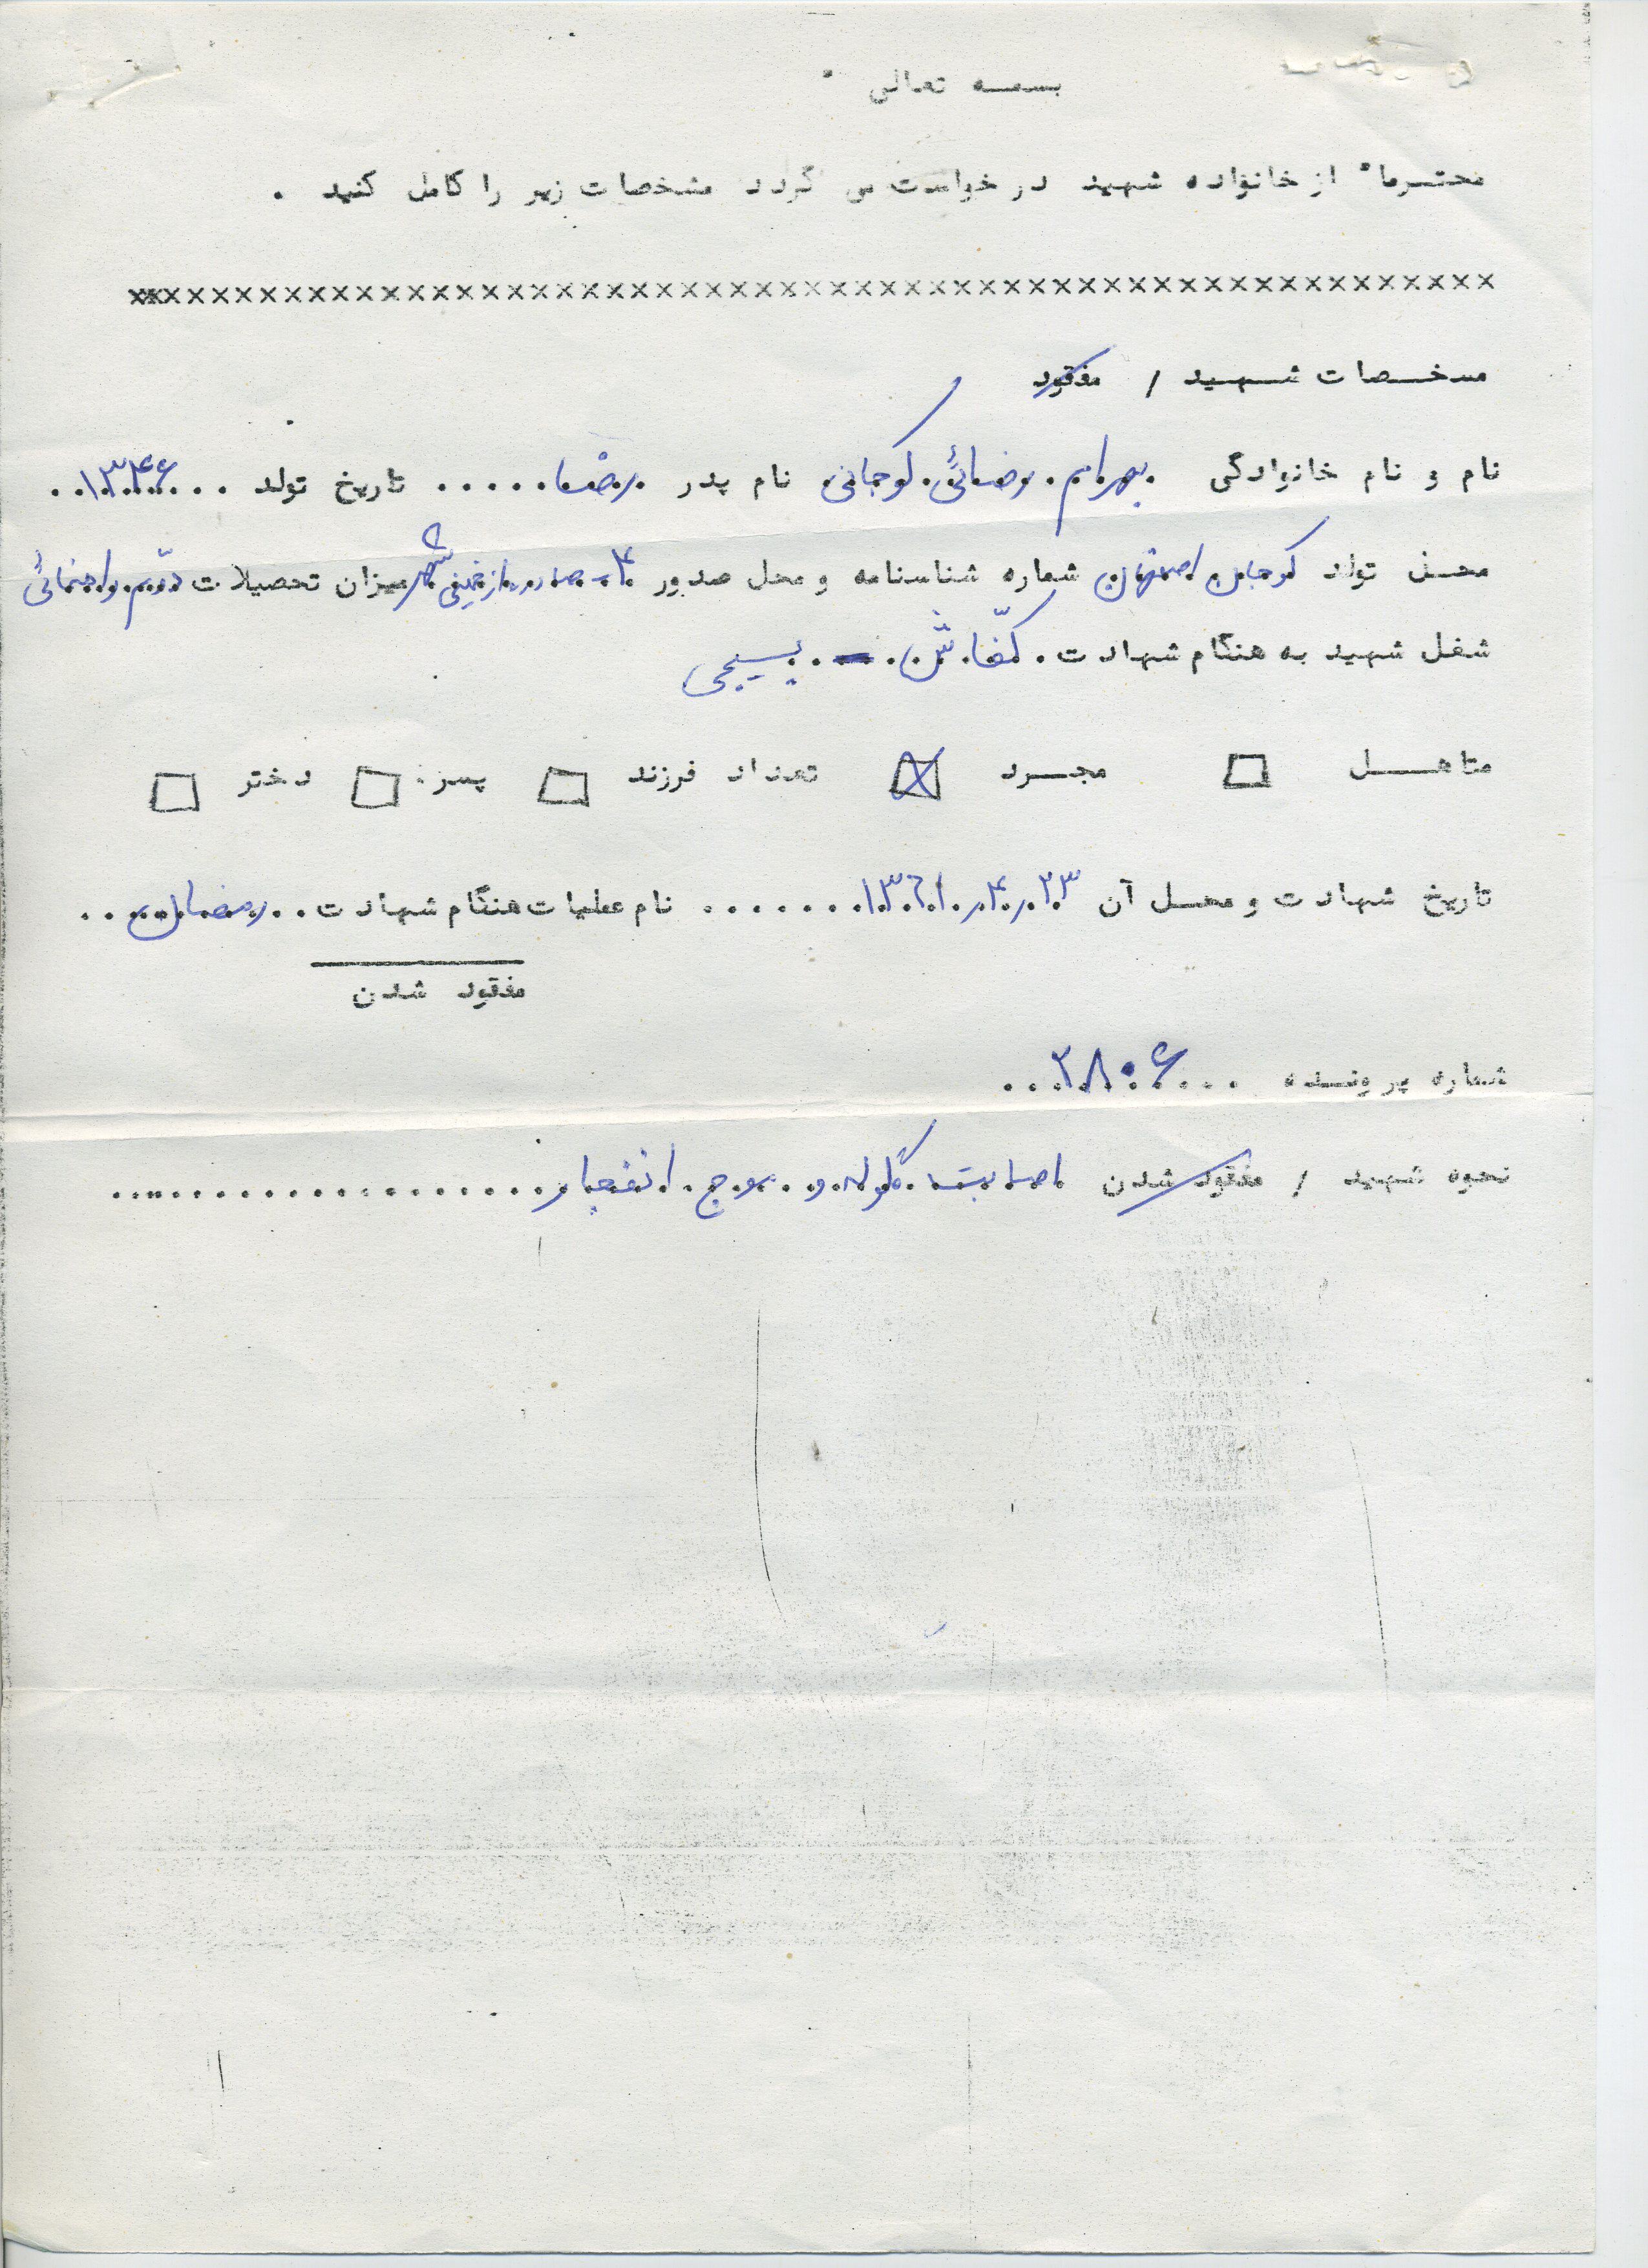 بسمه تعالی
محترما" از خانواده شهید درخواست می گردد مشخصات زیر را کامل کنید .
xxxxxxxxxxxxxxxxxxxxxxxxxxxxxxxxxxxxxxxxxxxxxxxxxxxxxxx
مشخصات شهید / مفقود
نام و نام خانوادگی بهرام رضائی کوجانی نام پدر رضا ..... تاریخ تولد ... ۱۳۴۶ ..
محل تولد کوجان اصفهان شماره شناسنامه و محل صدور ۴ - صادره از خمینی شهر میزان تحصیلات دوّم راهنمائی
شغل شهید به هنگام شهادت . کفّاش - بسیجی
متاهل □ مجرد ☒ تعداد فرزند □ پسر : □ دختر □
تاریخ شهادت و محل آن ۱۳۶۱/۴/۲۳ ....... نام عملیات هنگام شهادت .. رمضان ..
مفقود شدن
شماره پرونده ... ۲۸۰۶ ...
نحوه شهید / مفقود شدن اصابت گلوله و موج انفجار ....................